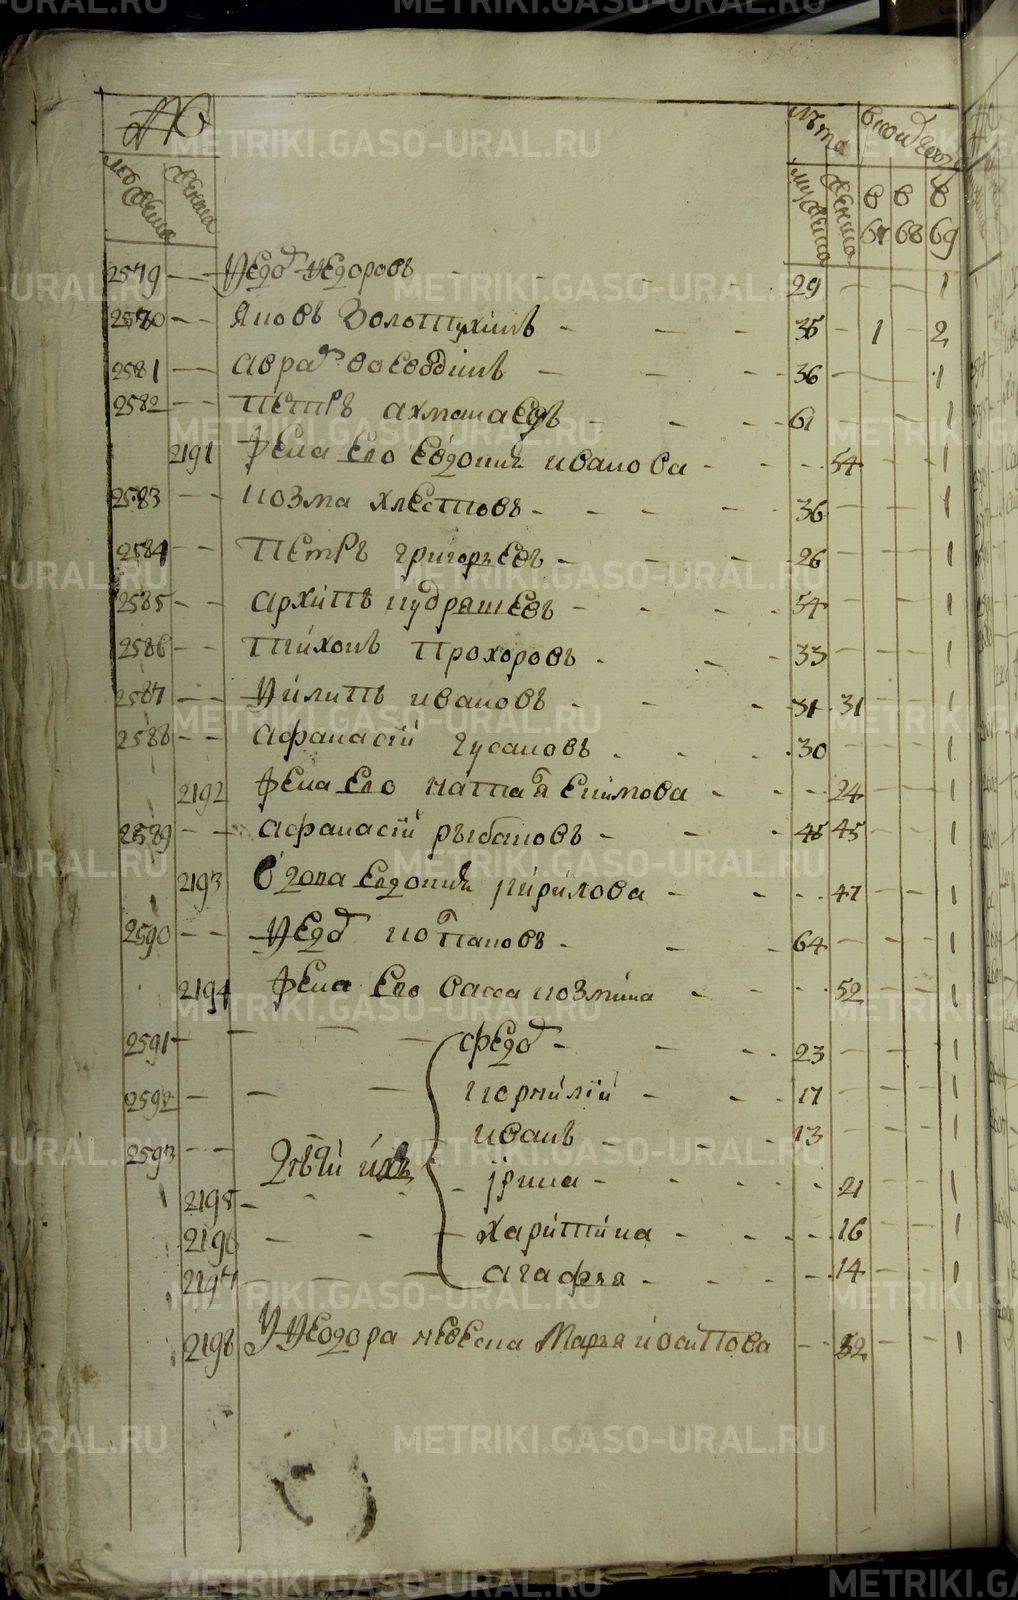 № лѣта
мужеска женска мужеска женска в 67 в 68 в 69
2579 Ѳедоръ Ѳедоровъ 29 1
2580 Яковъ Золотухинъ 35 1 2
2581 Аврамъ Воеводинъ 36 1
2582 Петръ 61 1
2191 жена ево Евдокия Иванова 54 1
2583 Козма Хлестовъ 36 1
2584 Петръ Григорьевъ 26 1
2585 Архипъ Кудряшевъ 54 1
2586 Тихонъ Прохоровъ 33 1
2587 Ѳилипъ Ивановъ 31 31 1
2588 Афанасий Гусаковъ 30 1
2192 жена ево Наталя Екимова 24 1
2589 Афанасий Рыбаковъ 45 45 1
2193 вдова Евдокия Кирилова 47 1
2590 Ѳедоръ Потаповъ 64 1
2194 жена ево Васса Козмина 52 1
2591 Федоръ 23 1
2592 Корнилий 17 1
2593 Иванъ 13 1
дѣти ихъ
2195 Ирина 21 1
2196 Харитина 16 1
2197 Агафья 14 1
2198 У Ѳеодора невеска Марья Иосипова 52 1
METRIKI.GASO-URAL.RU